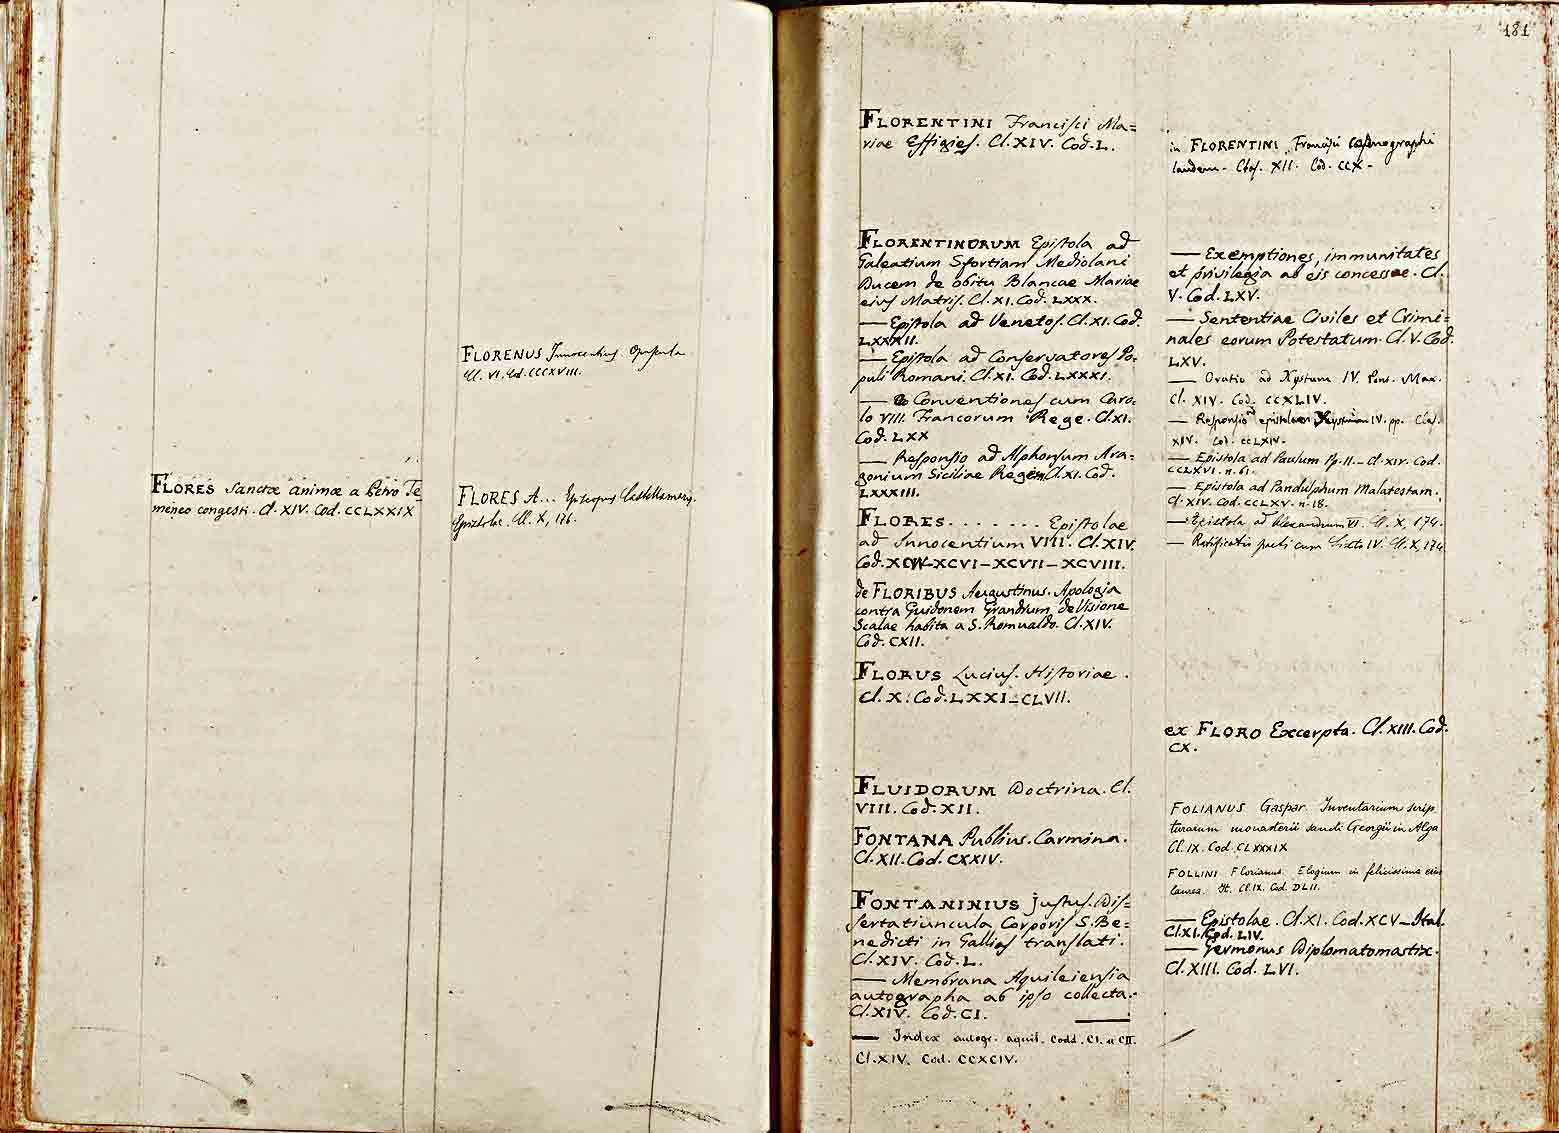 FLORES Sanctæ animæ a Petro Te=
meneo congesti. Cl. XIV. Cod. CCLXXIX
FLORENUS Innocentius Opuscula
Cl. VI. Cod. CCCXVIII.
FLORES A... Episcopus Castellamaris.
Epistolae. Cl. X, 176.
181
FLORENTINI Francisci Ma=
riae Effigies. Cl. XIV. Cod. L.
FLORENTINORUM Epistola ad
Galeatium Sfortiam Mediolani
Ducem de obitu Blancae Mariae
eius Matris. Cl. XI. Cod. LXXX.
— Epistola ad Venetos. Cl. XI. Cod.
LXXXII.
— Epistola ad Conservatores Po-
puli Romani. Cl. XI. Cod. LXXXI.
— Conventiones cum Caro-
lo VIII. Francorum Rege. Cl. XI.
Cod. LXX
— Responsio ad Alphonsum Ara=
gonium Siciliae Regem Cl. XI. Cod.
LXXXIII.
FLORES . . . . . . . Epistolae
ad Innocentium VIII. Cl. XIV.
Cod. XCV–XCVI–XCVII–XCVIII.
de FLORIBUS Augustinus. Apologia
contra Guidonem Grandium de Visione
Scalae habita a S. Romualdo. Cl. XIV.
Cod. CXII.
FLORUS Lucius. Historiae.
Cl. X. Cod. LXXI–CLVII.
FLUIDORUM Doctrina. Cl.
VIII. Cod. XII.
FONTANA Publius. Carmina.
Cl. XII. Cod. CXXIV.
FONTANINIUS Justus. Dis=
sertatiuncula Corporis S. Be=
nedicti in Gallias translati.
Cl. XIV. Cod. L.
— Membrana Aquileiensia
autographa ab ipso collecta.
Cl. XIV. Cod. CI.
— Index autogr. aquil. Codd. CI. et CII.
Cl. XIV. Cod. CCXCIV.
in FLORENTINI Francisci Cosmographi
laudem. Clas. XII. Cod. CCX.
— Exemptiones, immunitates
et privilegia ab eis concessae. Cl.
V. Cod. LXV.
— Sententiae Civiles et Crimi=
nales eorum Potestatum. Cl. V. Cod.
LXV.
— Oratio ad Xystum IV. Pont. Max.
Cl. XIV. Cod. CCXLIV.
— Responsio ad epistolam Xystinam IV. pp. Clas.
XIV. Cod. CCLXIV.
— Epistola ad Paulum Pp. II. Cl. XIV. Cod.
CCLXVI. n. 61.
— Epistola ad Pandulphum Malatestam.
Cl. XIV. Cod. CCLXV. n. 18.
— Epistola ad Alexandrum VI. Cl. X, 174.
— Ratificatio pacti cum Sixto IV. Cl. X, 174
ex FLORO Excerpta. Cl. XIII. Cod.
CX.
FOLIANUS Gaspar. Inventarium scrip
turarum monasterii sancti Georgii in Alga
Cl. IX. Cod. CLXXXIX
FOLLINI Florianus. Elogium in felicissima eius
laurea. It. Cl. IX. Cod. DLII.
— Epistolae. Cl. XI. Cod. XCV – Ital.
Cl. XI. Cod. LIV.
— Germonus Diplomatomastix.
Cl. XIII. Cod. LVI.